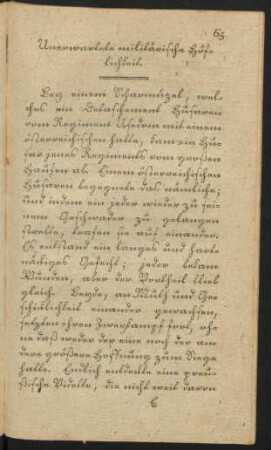 65
Unerwartete militärische Höf-
lichkeit.
Bey einem Scharmützel, wel-
ches ein Detaschement Husaren
vom Regiment Usedom mit einem
österreichischen hatte, kam ein Hu-
sar jenes Regiments vom großen
Haufen ab. Einem österreichischen
Husaren begegnete das nämliche;
und indem ein jeder wieder zu sei-
nem Geschwader zu gelangen
strebte, trafen sie auf einander.
Es entstand ein langes und hart-
näckiges Gefecht; jeder bekam
Wunden, aber der Vortheil blieb
gleich. Beyde, an Muth und Ge-
schicklichkeit einander gewachsen,
setzten ihren Zweykampf fort, oh-
ne daß weder der eine noch der an-
dere größere Hoffnung zum Siege
hatte. Endlich entdeckte eine preu-
ßische Vidette, die nicht weit davon